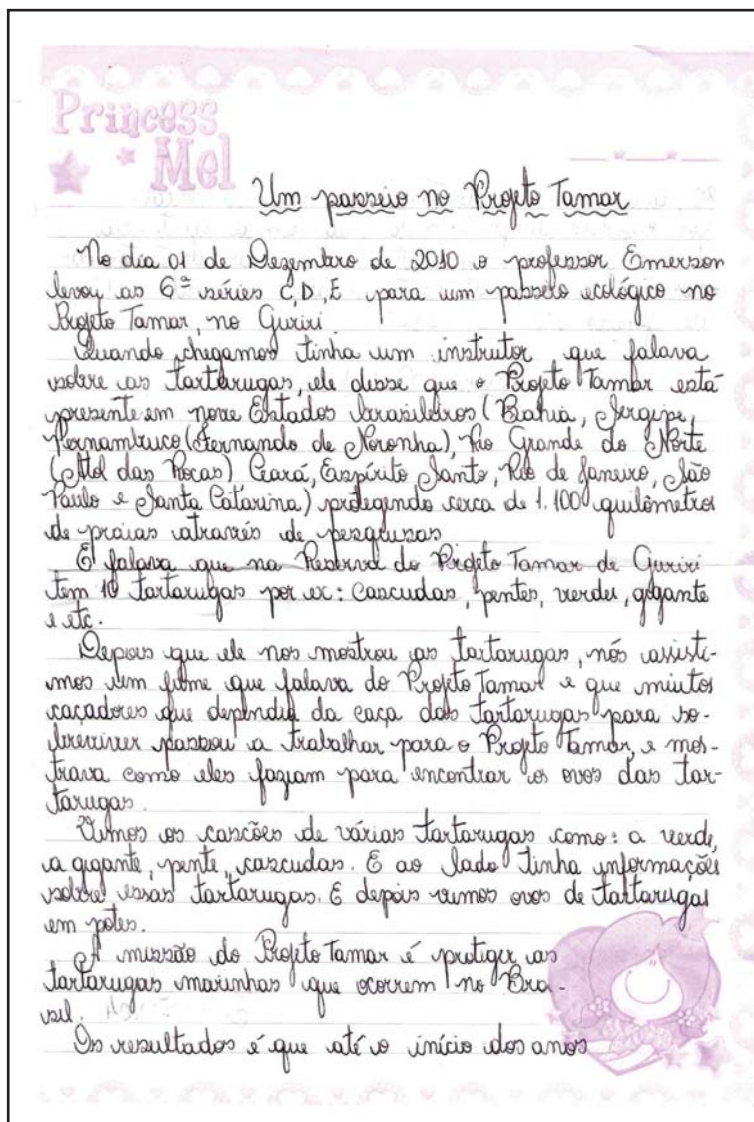 Princess
Mel
Um passeio no Projeto Tamar
No dia 01 de Dezembro de 2010 o professor Emerson
levou as 6ªs séries C, D, E para um passeio ecológico no
Projeto Tamar, no Guriri.
Quando chegamos tinha um instrutor que falava
sobre as tartarugas, ele disse que o Projeto Tamar está
presente em nove Estados brasileiros (Bahia, Sergipe,
Pernambuco (Fernando de Noronha), Rio Grande do Norte
(Atol das Rocas) Ceará, Espírito Santo, Rio de Janeiro, São
Paulo e Santa Catarina) protegendo cerca de 1.100 quilômetros
de praias através de pesquisas
E falava que na Reserva do Projeto Tamar de Guriri
tem 10 tartarugas por ex: Cascudas, pentes, verdes, gigante
e etc.
Depois que ele nos mostrou as tartarugas, nós assisti-
mos um filme que falava do Projeto Tamar e que muitos
caçadores que dependia da caça das tartarugas para so-
breviver passou a trabalhar para o Projeto Tamar, e mos-
trava como eles faziam para encontrar os ovos das tar-
tarugas.
Vimos os cascões de várias tartarugas como: a verde,
a gigante, pente, cascudas. E ao lado tinha informações
sobre essas tartarugas. E depois vimos ovos de tartarugas
em potes.
A missão do Projeto Tamar é proteger as
tartarugas marinhas que ocorrem no Bra-
sil.
Os resultados é que até o início dos anos